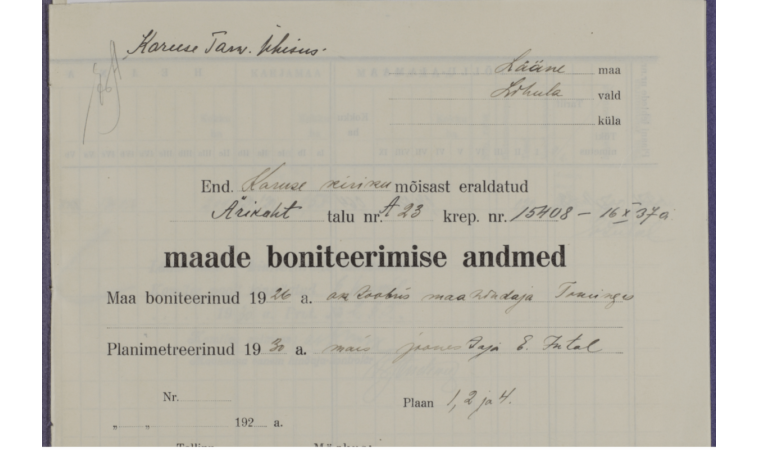 Karuse Tarv. Ühisus.
Lääne maa
Lihula vald
küla
End. Karuse kiriku mõisast eraldatud
Ärikoht talu nr. A 23 krep. nr. 15408 – 16 X 37 a
maade boniteerimise andmed
Maa boniteerinud 1926 a. oktoobris maahindaja
Planimetreerinud 1930 a. mais joonestaja E.
Nr.
Plaan 1, 2 ja 4.
„ „ 192 a.